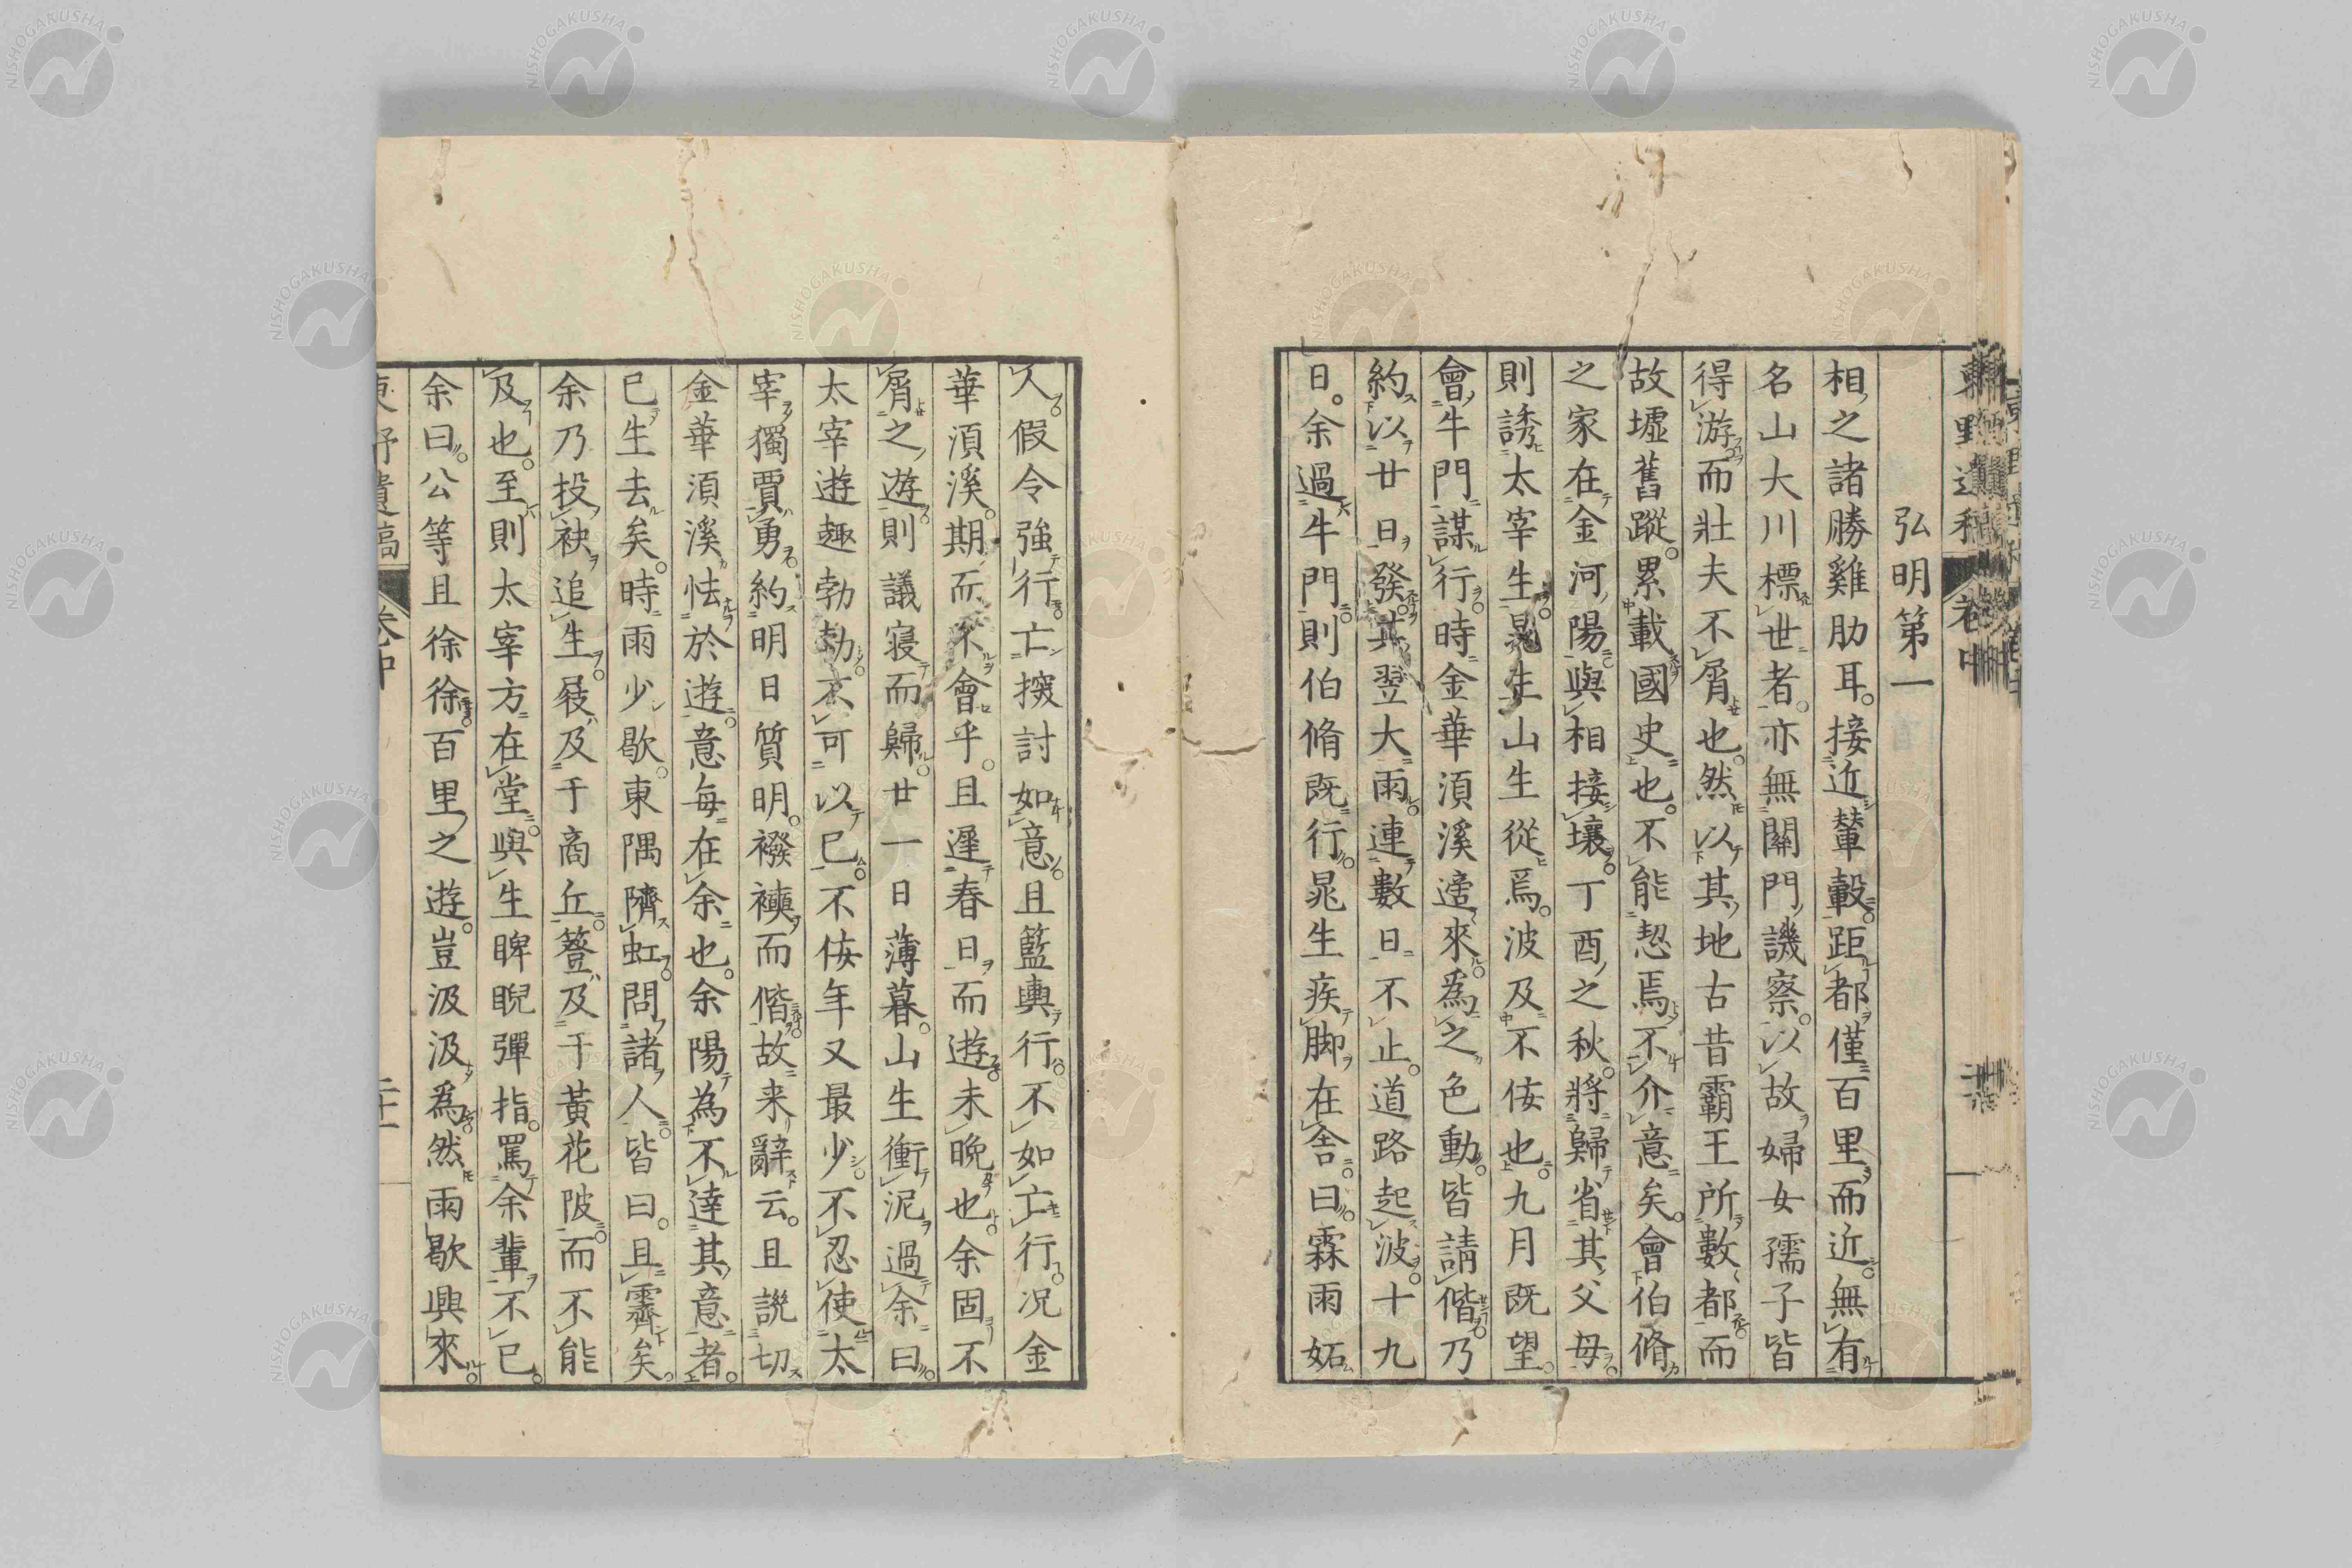 弘明第一
相之諸勝雞肋耳。接近輦轂。距都僅百里而近。無有
名山大川標世者。亦無關門譏察。以故婦女孺子皆
得游而壯夫不屑也。然以其地古昔霸王所數都而
故墟舊蹤。累載國史也。不能恝焉不介意矣。會伯脩
之家在金河陽與相接壤。丁酉之秋。將歸省其父母。
則誘太宰生晁生山生從焉。波及不侫也。九月既望。
會牛門謀行時金華湏溪適來。為之色動。皆請偕乃
約以廿日發。其翌大雨。連數日不止。道路起波。十九
日。余過牛門則伯脩既行。晁生疾脚在舍。曰。霖雨妬
人。假令強行。亡搜討如意。且籃輿行。不如亡行。况金
華湏溪。期而不會乎。且遲春日而遊。未晚也。余固不
屑之遊。則議寝而歸。廿一日薄暮。山生衝泥過余曰。
太宰遊趣勃勃。不可以已。不侫年又最少。不忍使太
宰獨賈勇。約明日質明。襏襫而偕。故来辭云。且説切
金華湏溪怯於遊。意每在余也。余陽為不達其意者。
已生去矣。時雨少歇。東隅隮虹。問諸人。皆曰。且霽矣。
余乃投袂追生。屐及于商丘。簦及于黃花陂。而不能
及也。至則太宰方在堂。與生睥睨彈指。罵余輩不已。
余曰。公等且徐徐。百里之遊。豈汲汲為。然雨歇興來。